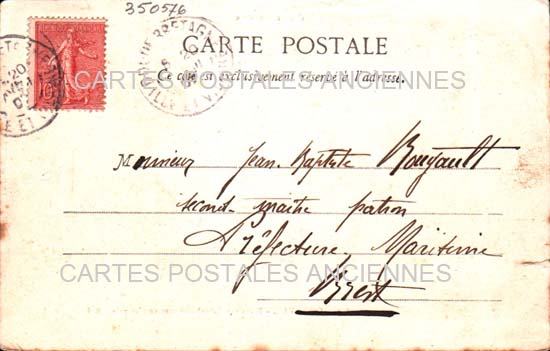 350576
CARTE POSTALE
Ce côté est exclusivement réservé à l'adresse.
CARTES POSTALES ANCIENNES
Monsieur Jean-Baptiste
second-maître patron
Préfecture Maritime
CARTES POSTALES ANCIENNES
Brest